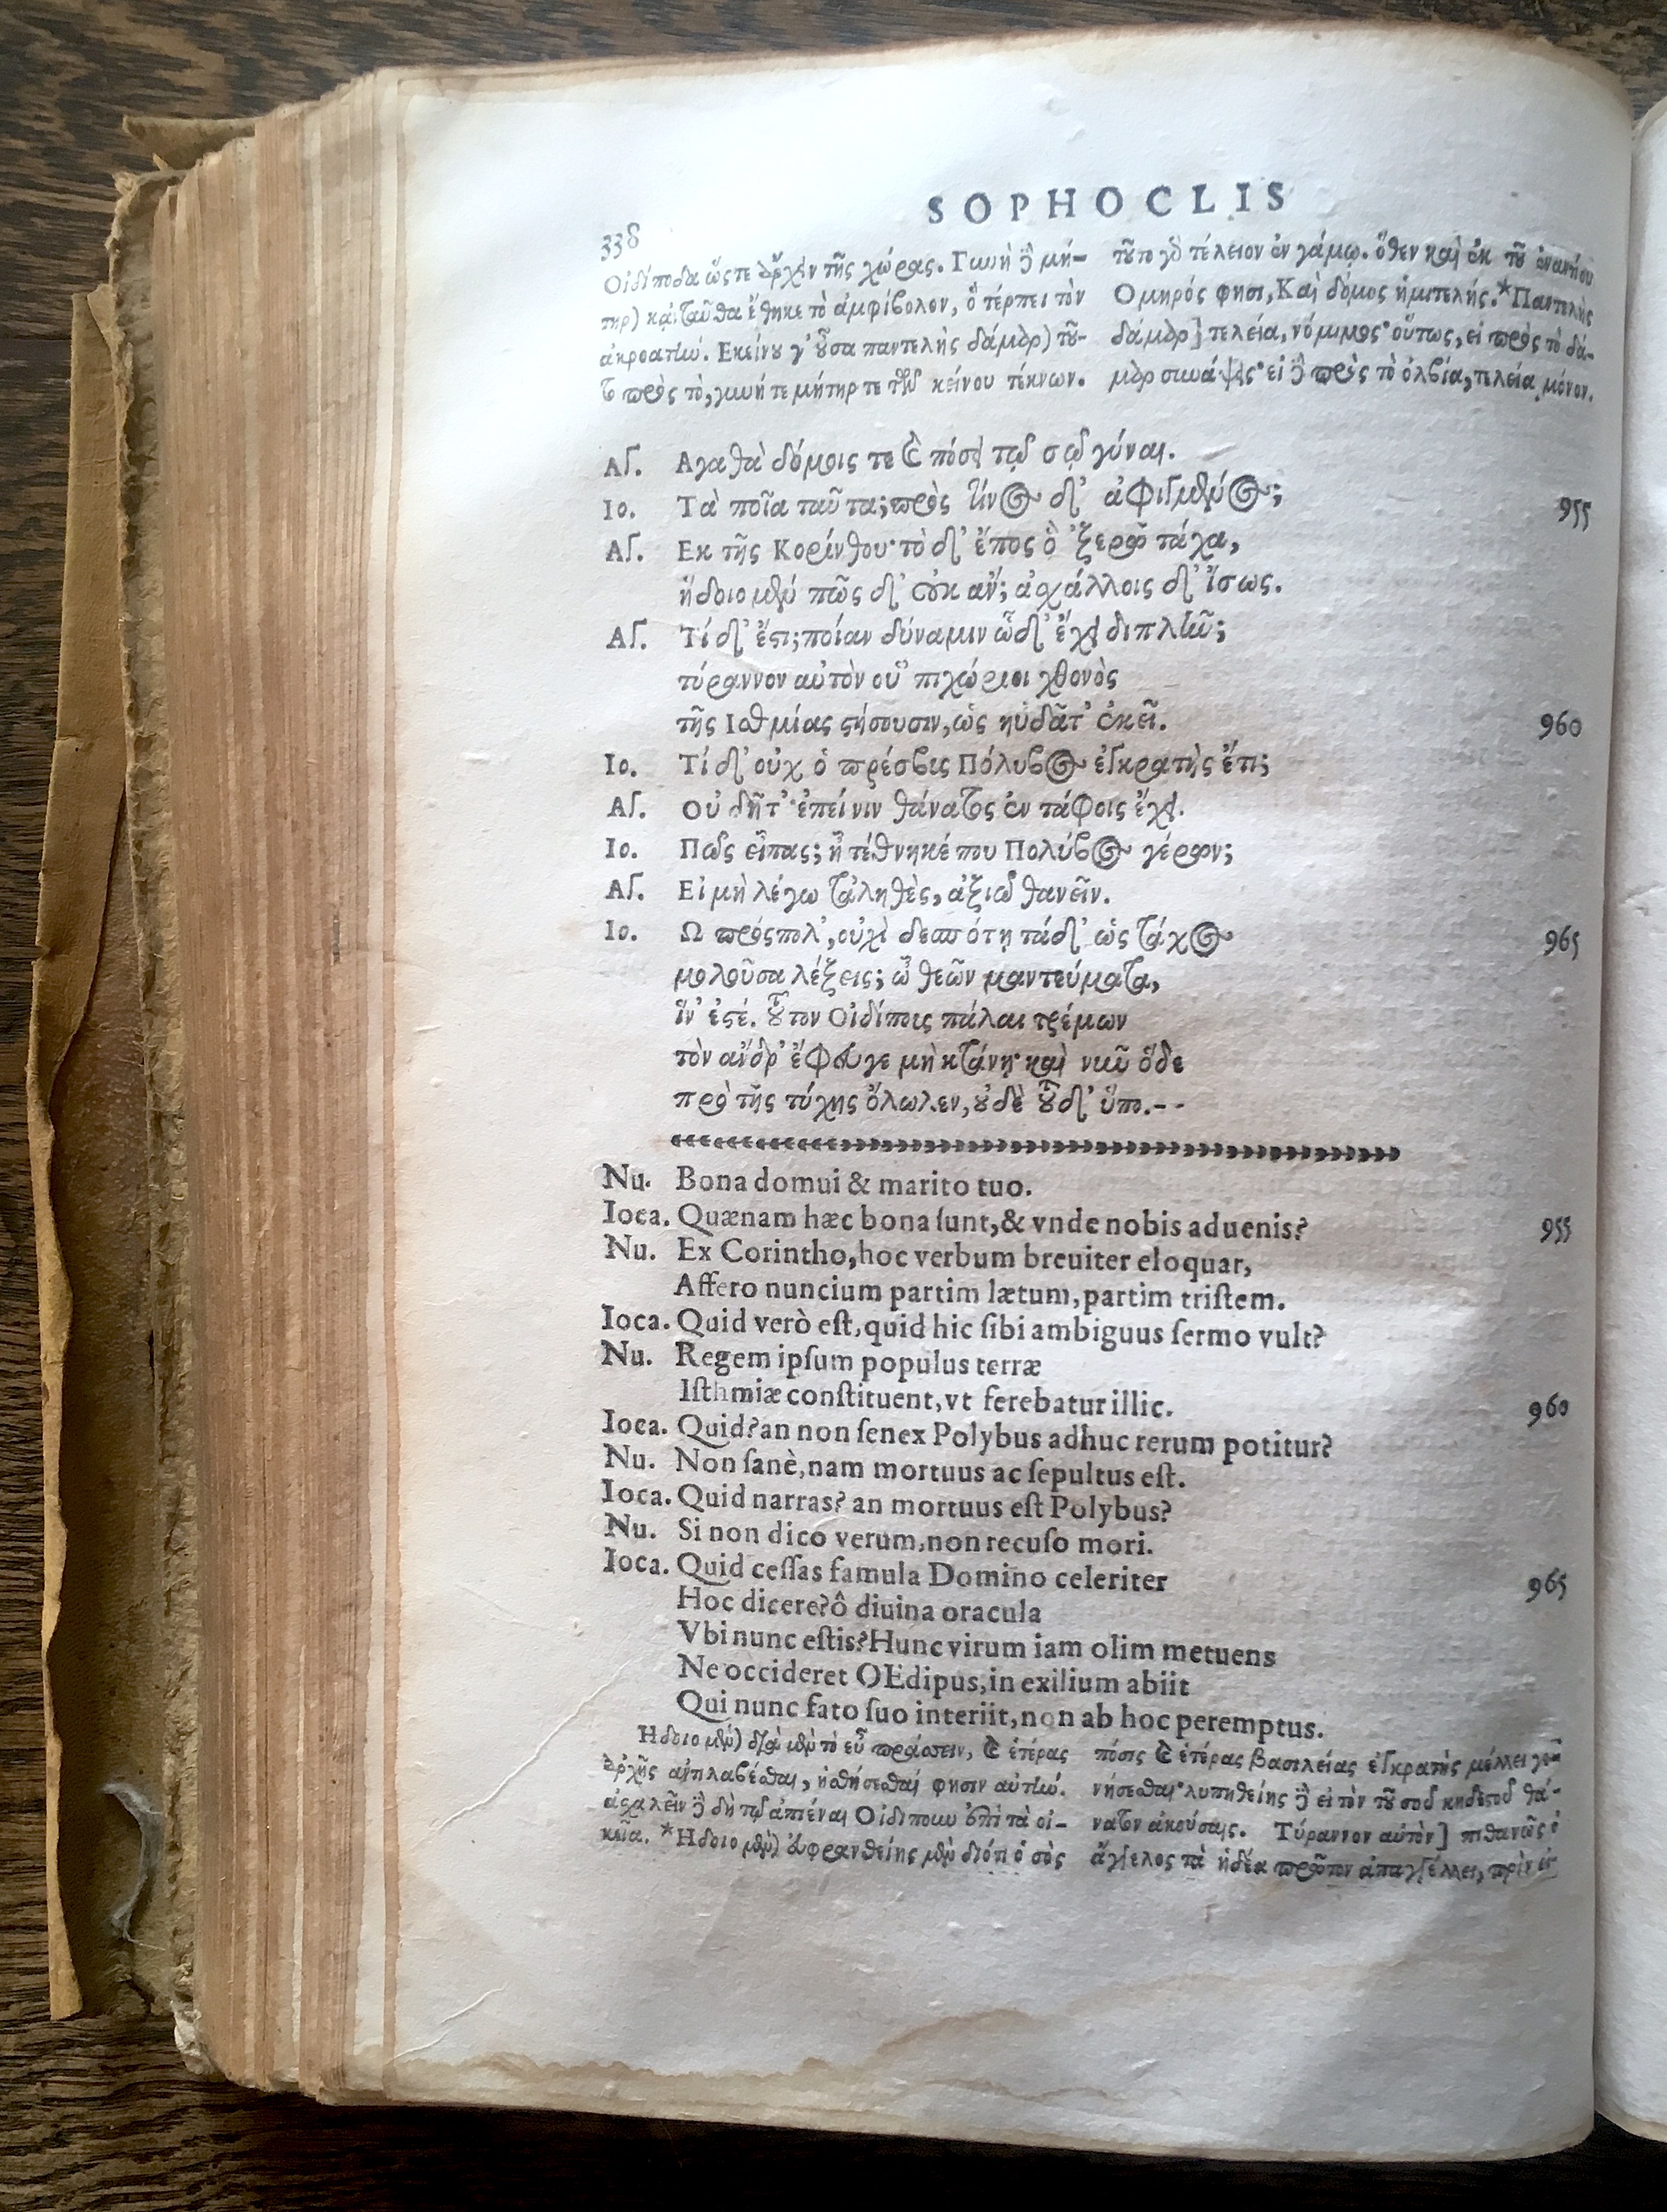 SOPHOCLIS
338
Οἰδίποδα ὥςτε ἄρχειν τῆς χώρας. Γυνὴ δὲ μή-
τηρ) κἀνταῦθα ἔθηκε τὸ ἀμφίβολον, ὃ τέρπει τὸν
ἀκροατὴν. Εκείνου γ' οὖσα παντελὴς δάμαρ) τοῦ-
το πρὸς τὸ, γυνή τε μήτηρ τε τῶν κείνου τέκνων.
τοῦτο γὰρ τέλειον ἐν γάμῳ. ὅθεν καὶ ἐκ τοῦ ἐναντίου
Ομηρός φησι, Καὶ δόμος ἡμιτελής. *Παντελὴς
δάμαρ] τελεία, νόμιμος· οὕτως, εἰ πρὸς τὸ δά-
μαρ συνάψεις· εἰ δὲ πρὸς τὸ ὀλβία, τελεία μόνον.
ΑΓ. Αγαθὰ δόμοις τε καὶ πόσει τῷ σῷ γύναι.
Ιο. Τὰ ποῖα ταῦτα; πρὸς τίνος δ' ἀφιγμένος; 955
ΑΓ. Εκ τῆς Κορίνθου· τὸ δ' ἔπος ὃ 'ξερῶ τάχα,
ἥδοιο μὲν πῶς δ' οὐκ ἄν; ἀχάλλοις δ' ἴσως.
ΑΓ. Τί δ' ἔστι; ποίαν δύναμιν ὧδ' ἔχει διπλῆν;
τύραννον αὐτὸν οὑ πιχώριοι χθονὸς
τῆς Ισθμίας στήσουσιν, ὡς ηὐδᾶτ' ἐκεῖ. 960
Ιο. Τί δ' οὐχ ὁ πρέσβυς Πόλυβος ἐγκρατὴς ἔτι;
ΑΓ. Οὐ δῆτ'· ἐπεί νιν θάνατος ἐν τάφοις ἔχει.
Ιο. Πῶς εἶπας; ἦ τέθνηκέ που Πολύβος γέρων;
ΑΓ. Εἰ μὴ λέγω τἀληθὲς, ἀξιῶ θανεῖν.
Ιο. Ω πρόςπολ', οὐχὶ δεσπότῃ τάδ' ὡς τάχος 965
μολοῦσα λέξεις; ὦ θεῶν μαντεύματα,
ἵν' ἐστέ. τοῦτον Οἰδίπους πάλαι τρέμων
τὸν ἄνδρ' ἔφευγε μὴ κτάνῃ· καὶ νῦν ὅδε
πρὸ τῆς τύχης ὄλωλεν, οὐδὲ τοῦδ' ὕπο.--
Nu. Bona domui & marito tuo.
Ioca. Quænam hæc bona ſunt, & vnde nobis aduenis? 955
Nu. Ex Corintho, hoc verbum breuiter eloquar,
Affero nuncium partim lætum, partim triſtem.
Ioca. Quid verò eſt, quid hic ſibi ambiguus ſermo vult?
Nu. Regem ipſum populus terræ
Iſthmiæ conſtituent, vt ferebatur illic. 960
Ioca. Quid? an non ſenex Polybus adhuc rerum potitur?
Nu. Non ſanè, nam mortuus ac ſepultus eſt.
Ioca. Quid narras? an mortuus eſt Polybus?
Nu. Si non dico verum, non recuſo mori.
Ioca. Quid ceſſas famula Domino celeriter 965
Hoc dicere? ô diuina oracula
Vbi nunc eſtis? Hunc virum iam olim metuens
Ne occideret OEdipus, in exilium abiit
Qui nunc fato ſuo interiit, non ab hoc peremptus.
Ηδοιο μὲν) διὰ μὲν τὸ εὖ πράσσειν, καὶ ἑτέρας
ἀρχῆς ἀντιλαβέσθαι, ἡσθήσεσθαί φησιν αὐτήν.
ἀσχαλεῖν δὲ δὴ τῷ ἀπιέναι Οἰδίπουν ἐπὶ τὰ οἰ-
κεῖα. *Ηδοιο μὲν) εὐφρανθείης μὲν διότι ὁ σὸς
πόσις καὶ ἑτέρας βασιλείας ἐγκρατὴς μέλλει γε-
νήσεσθαι· λυπηθείης δὲ εἰ τὸν τοῦ σοῦ κηδεστοῦ θά-
νατον ἀκούσαις. Τύραννον αὐτὸν] πιθανῶς ὁ
ἄγγελος τὰ ἡδέα πρῶτον ἀπαγγέλλει, πρὶν